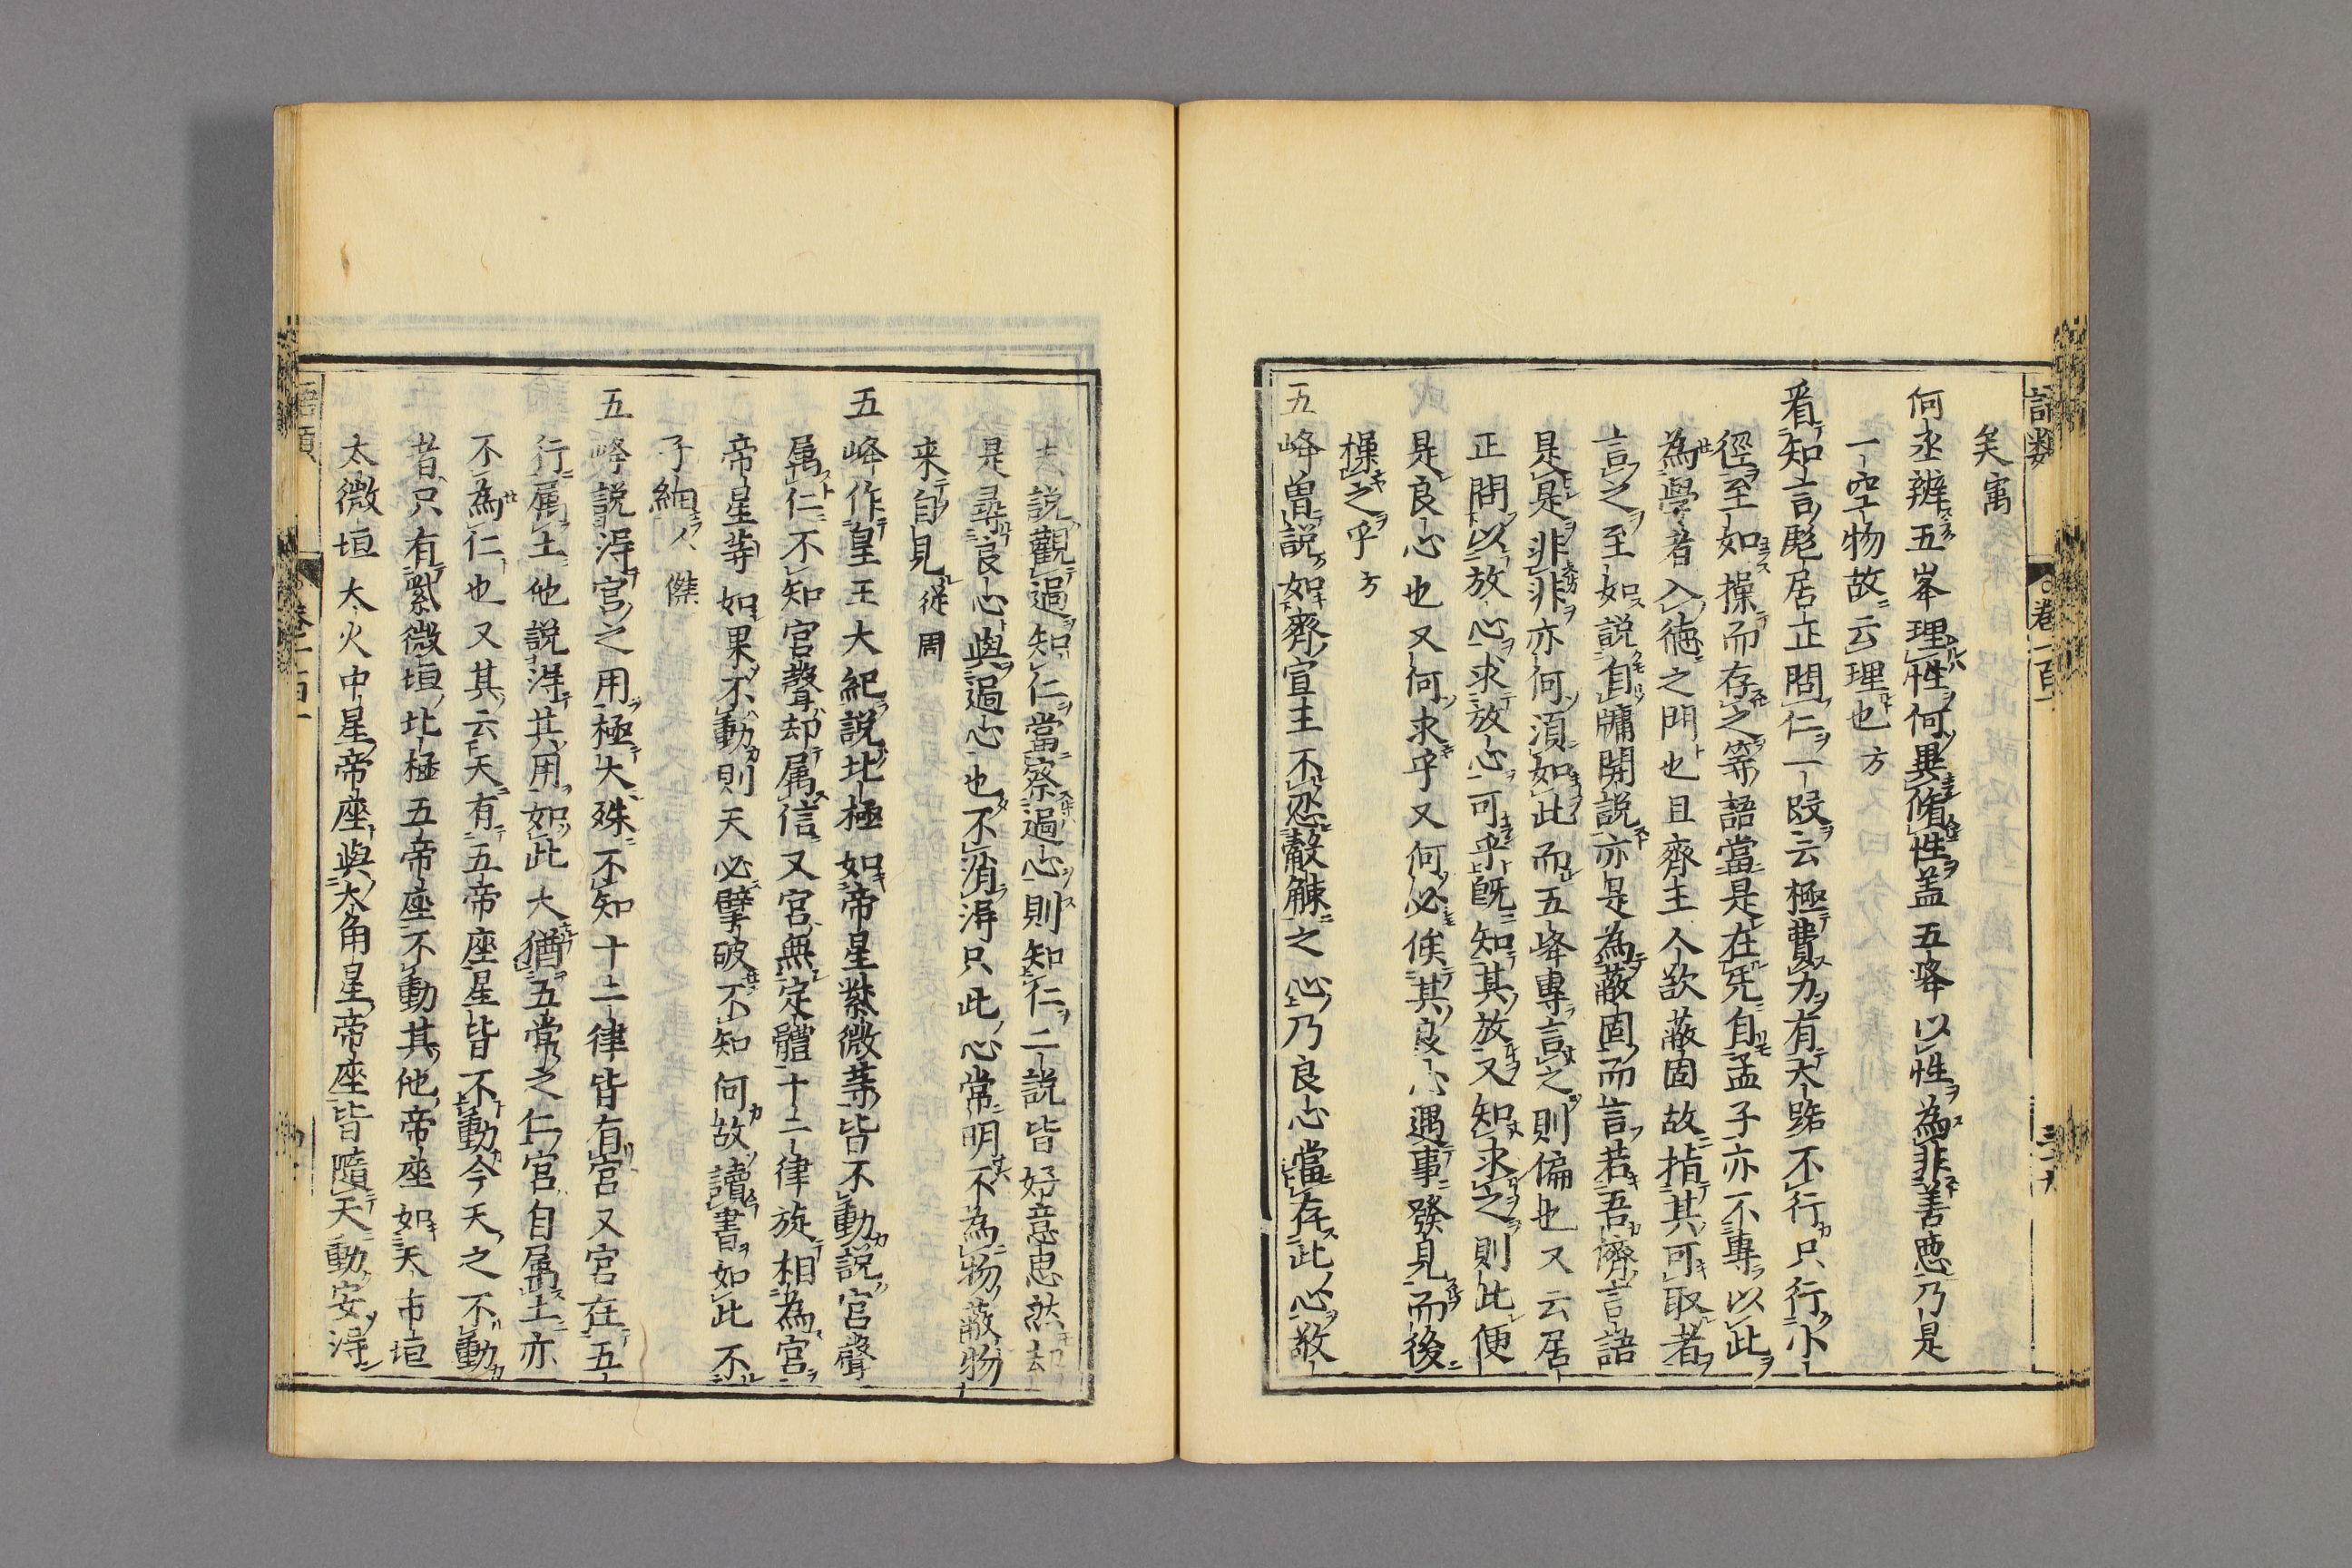 語類
卷一百一
矣㝢
何丞辨五峯理性何異脩性盖五峰以性為非善惡乃是
一空物故云理也方
看知言彪居正問仁一段云極費力有大路不行只行小
徑至如操而存之等語當是在先自孟子亦不專以此
為學者入徳之門也且齊王人欲蔽固故指其可取者
言之至如説自牖開説亦是為蔽固而言若吾儕言語
是是非非亦何須如此而五峰專言之則偏也又云居
正問以放心求放心可乎既知其放又知求之則此便
是良心也又何求乎又何必俟其良心遇事發見而後
操之乎方
五峰曽説如齊宣王不忍觳觫之心乃良心當存此心敬
夫説觀過知仁當察過心則知仁二説皆好意思然却
是尋良心與過心也不消得只此心常明不為物蔽物
来自見從周
五峰作皇王大紀説北極如帝星紫微等皆不動説宮聲
属仁不知宮聲却属信又宮無定體十二律旋相為宮
帝星等如果不動則天必擘破不知何故讀書如此不
子細人傑
五峰説得宮之用極大殊不知十二律皆有宮又宮在五
行属土他説得其用如此大猶五常之仁宮自属土亦
不為仁也又其云天有五帝座星皆不動今天之不動
者只有紫微垣北極五帝座不動其他帝座如天市垣
太微垣大火中星帝座與大角星帝座皆隨天動安得
語類
卷一百一